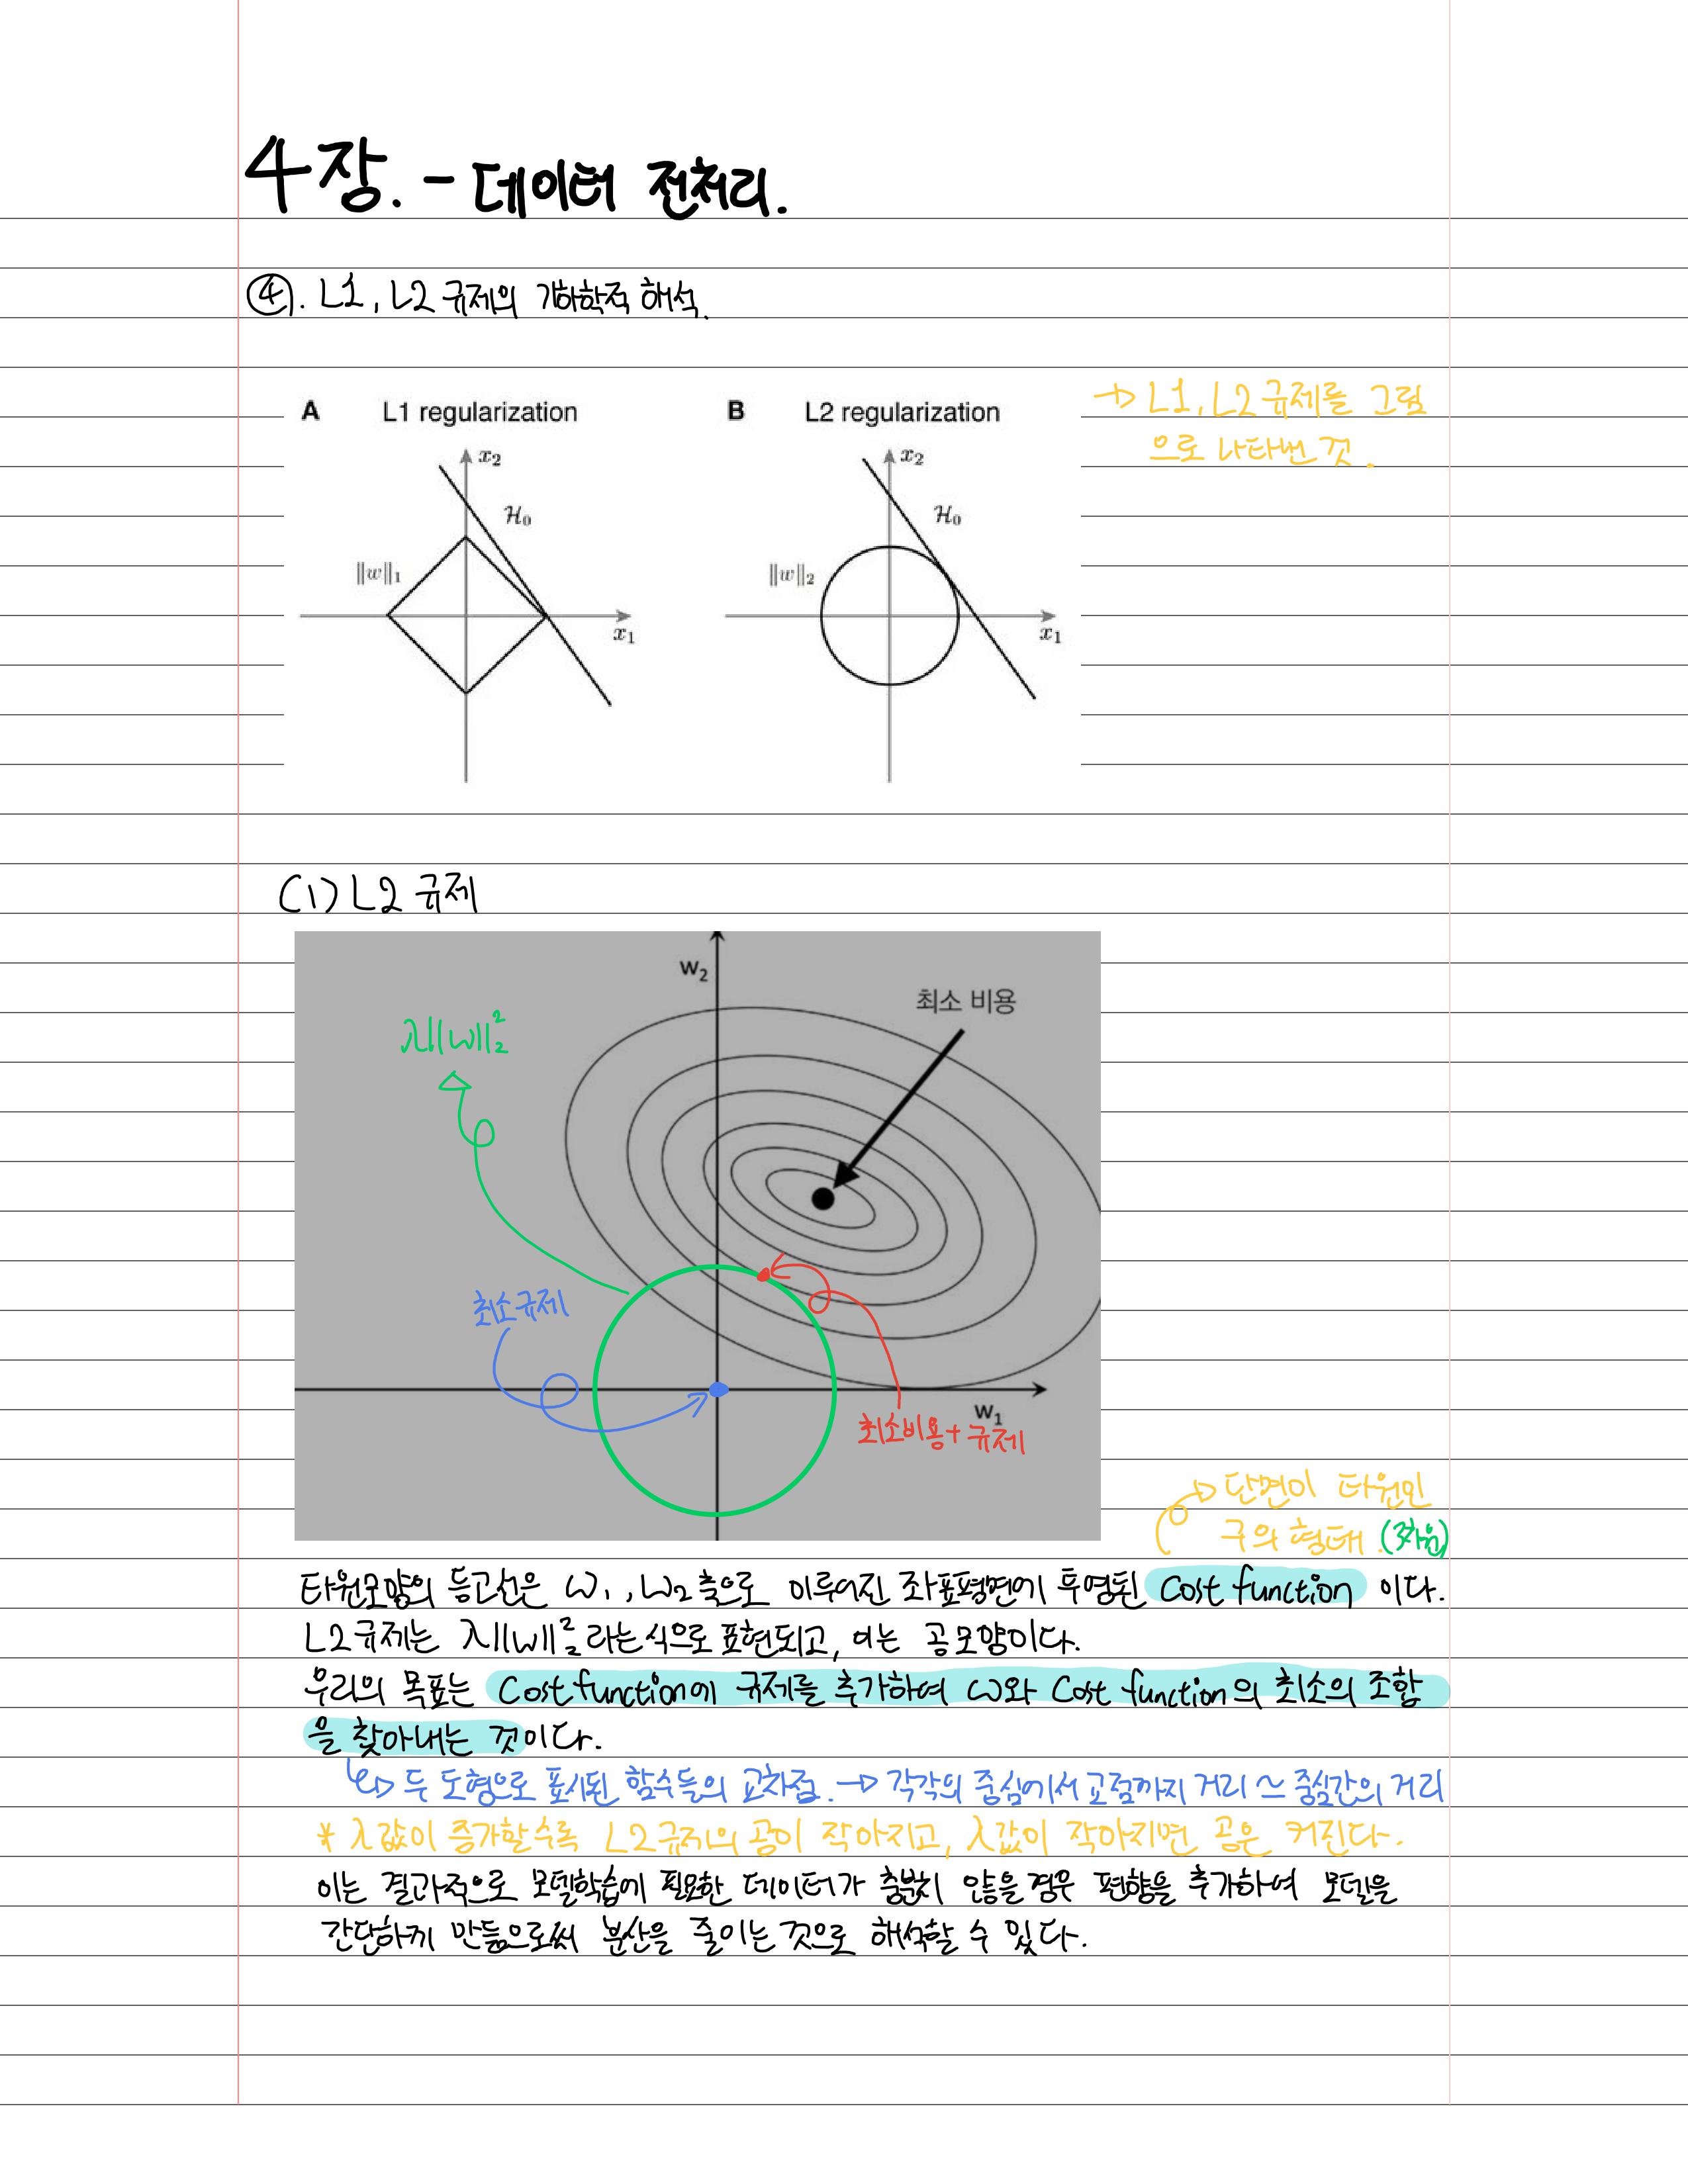 4장. - 데이터 전처리.
④. L1, L2 규제의 기하학적 해석.
A L1 regularization
B L2 regularization
→ L1, L2 규제를 그림
으로 나타낸 것.
x₂
H₀
‖w‖₁
x₁
x₂
H₀
‖w‖₂
x₁
(1) L2 규제
w₂
최소 비용
λ‖w‖₂²
최소규제
w₁
최소비용+규제
→ 단면이 타원인
구의 형태.
타원모양의 등고선은 w₁, w₂축으로 이루어진 좌표평면에 투영된 Cost function 이다.
L2규제는 λ‖w‖₂² 라는 식으로 표현되고, 이는 공모양이다.
우리의 목표는 Cost function에 규제를 추가하여 w와 Cost function의 최소의 조합
을 찾아내는 것이다.
↳ 두 도형으로 표시된 함수들의 교차점. → 각각의 중심에서 교점까지 거리 ≃ 중심간의 거리
* λ값이 증가할수록 L2규제의 공이 작아지고, λ값이 작아지면 공은 커진다.
이는 결과적으로 모델학습에 필요한 데이터가 충분치 않을 경우 편향을 추가하여 모델을
간단하게 만듦으로써 분산을 줄이는 것으로 해석할 수 있다.